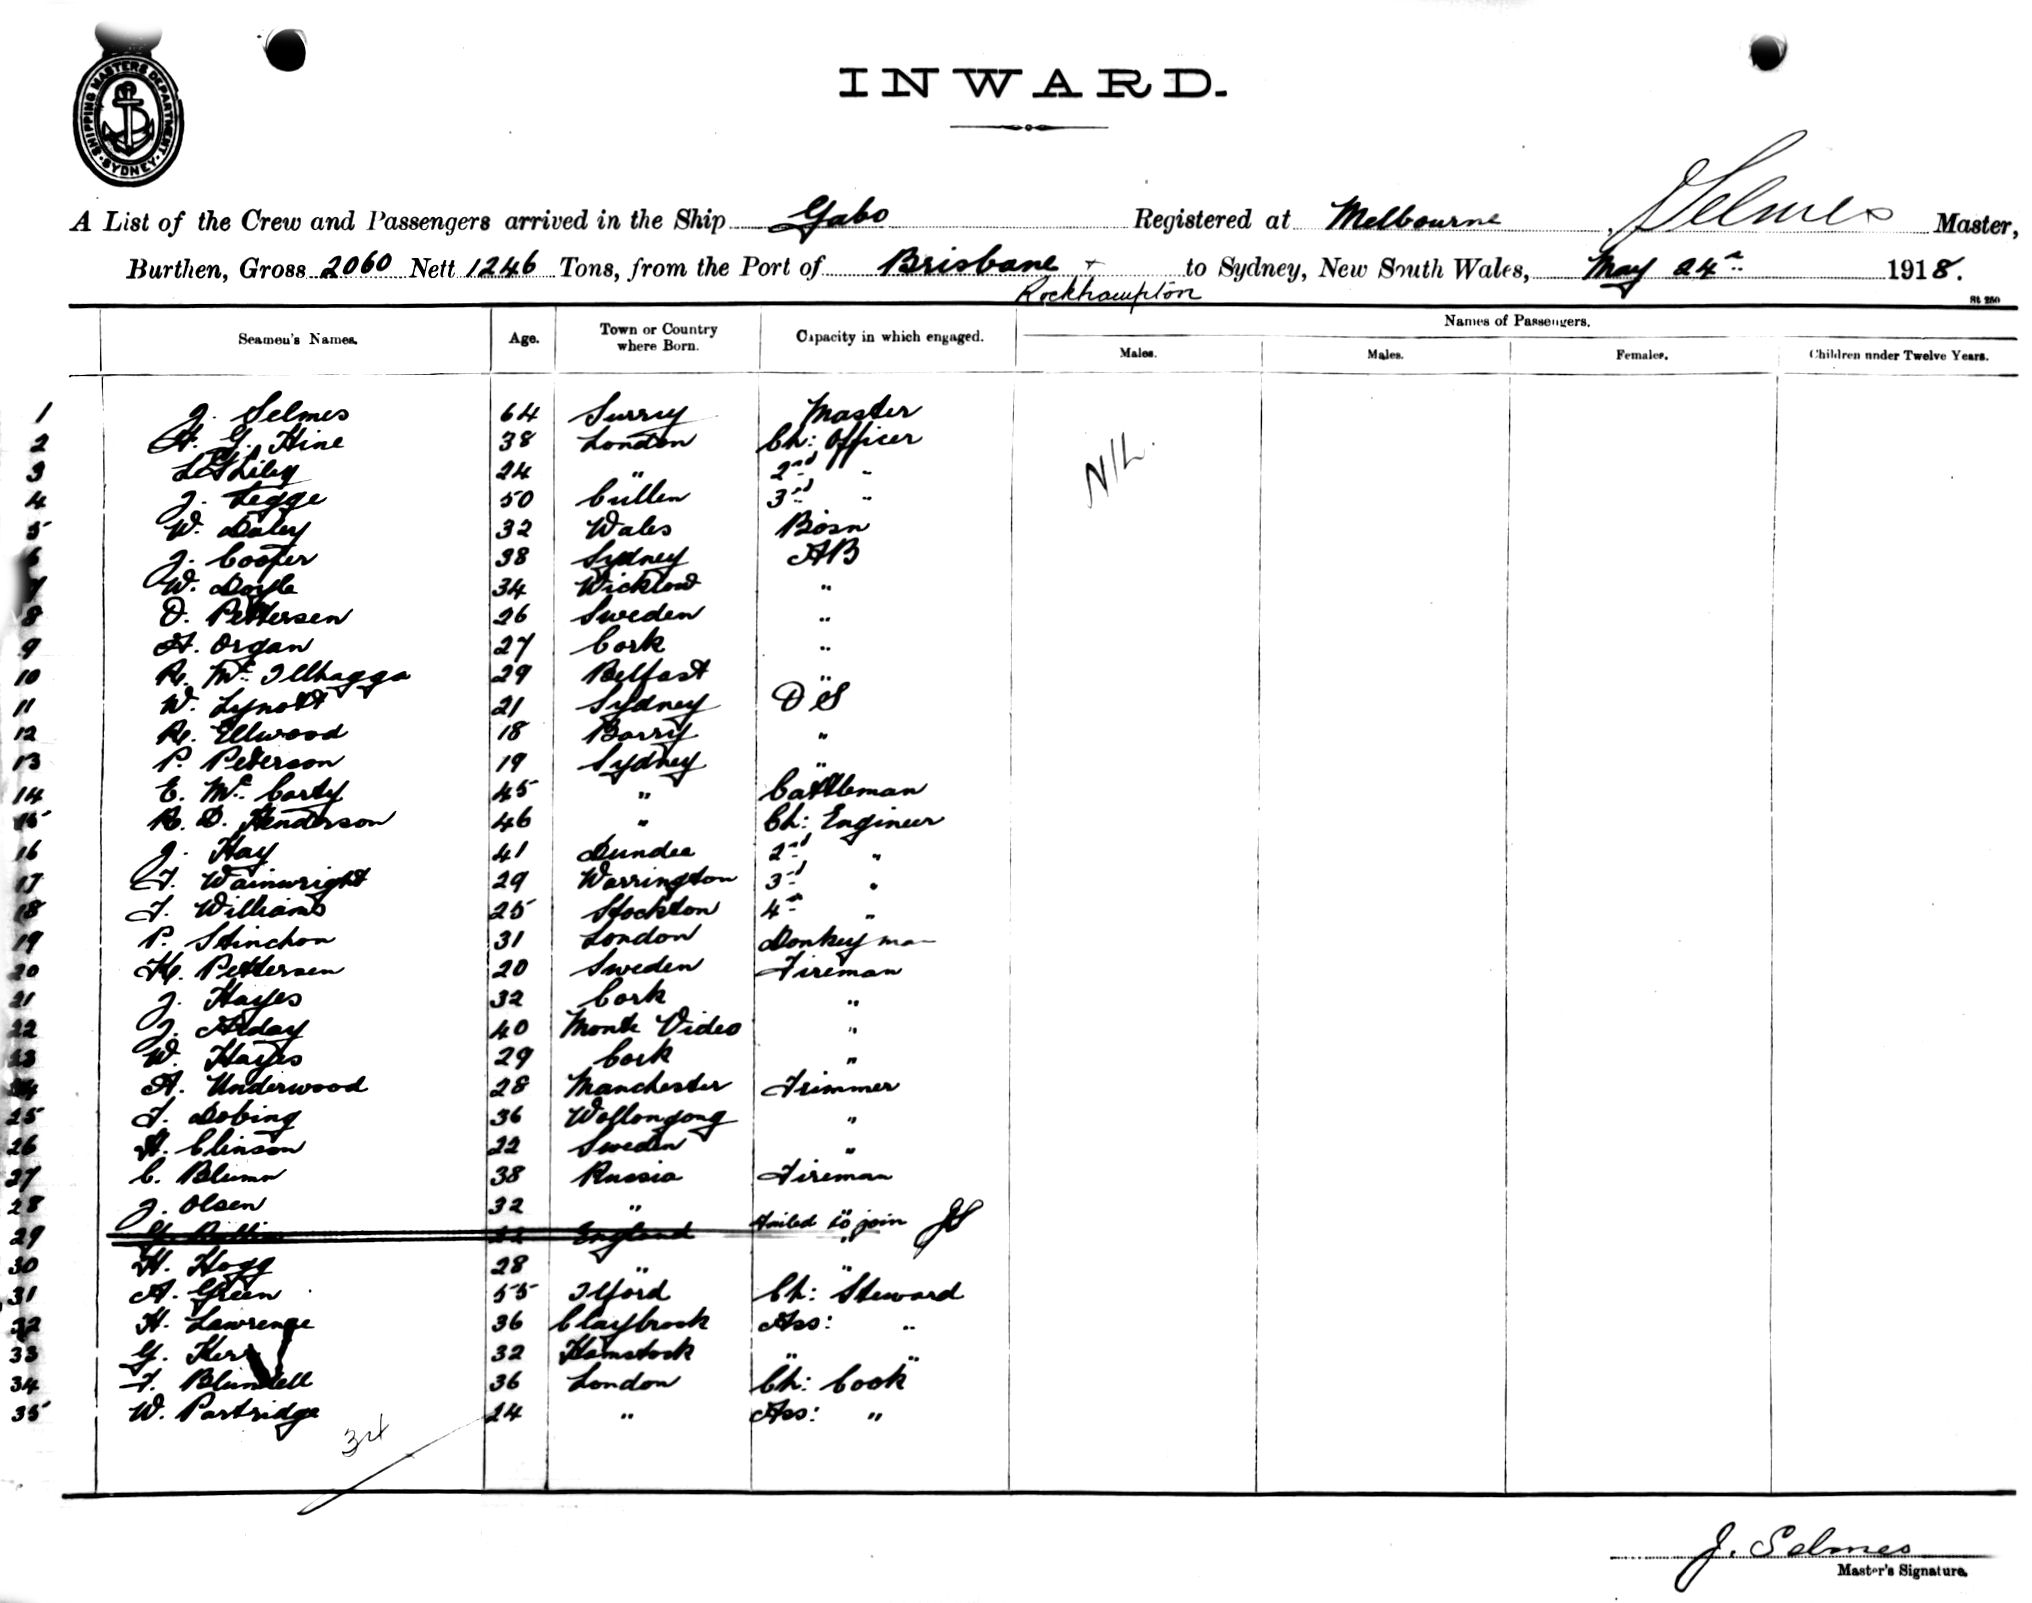 SHIPPING MASTERS DEPARTMENT. SYDNEY
INWARD.
A List of the Crew and Passengers arrived in the Ship Gabo Registered at Melbourne, J Selmes Master,
Burthen, Gross 2060 Nett 1246 Tons, from the Port of Brisbane + to Sydney, New South Wales, May 24th 1918.
Rockhampton
St 250
Seamen's Names. Age. Town or Country where Born. Capacity in which engaged. Names of Passengers.
Males. Males. Females. Children under Twelve Years.
1 J. Selmes 64 Surrey Master
2 H. G. Hine 38 London Ch: Officer
3 24 " 2nd "
4 J. Legge 50 Cullen 3rd "
NIL.
5 W. Daley 32 Wales Bosn
6 J. Cooper 38 Sydney AB
7 W. Doyle 34 Wicklow "
8 O. Pettersen 26 Sweden "
9 A. Organ 27 Cork "
10 R. Mc Ilhagga 29 Belfast "
11 W. Lynott 21 Sydney OS
12 R. Ellwood 18 Barry "
13 P. Peterson 19 Sydney "
14 E. Mc Carty 45 " Cattleman
15 R. D. Henderson 46 " Ch: Engineer
16 J. Hay 41 Dundee 2nd "
17 T. Wainwright 29 Warrington 3rd "
18 T. Williams 25 Stockton 4th "
19 P. Stinchon 31 London Donkeyman
20 K. Pettersen 20 Sweden Fireman
21 J. Hayes 32 Cork "
22 J. Alday 40 Monte Video "
23 W. Hayes 29 Cork "
24 A. Underwood 28 Manchester Trimmer
25 T. Dobing 36 Wollongong "
26 H. Clinson 22 Sweden "
27 C. Blumn 38 Russia Fireman
28 J. Olsen 32 " "
29 England Failed to join JS
30 H. Hogg 28 " "
31 A. Green 55 Ilford Ch: Steward
32 H. Lawrence 36 Claybrook Ass: "
33 G. Kerr 32 Hamstock " "
34 T. Blundell 36 London Ch: Cook
35 W. Partridge 24 " Ass: "
34
J. Selmes
Master's Signature.